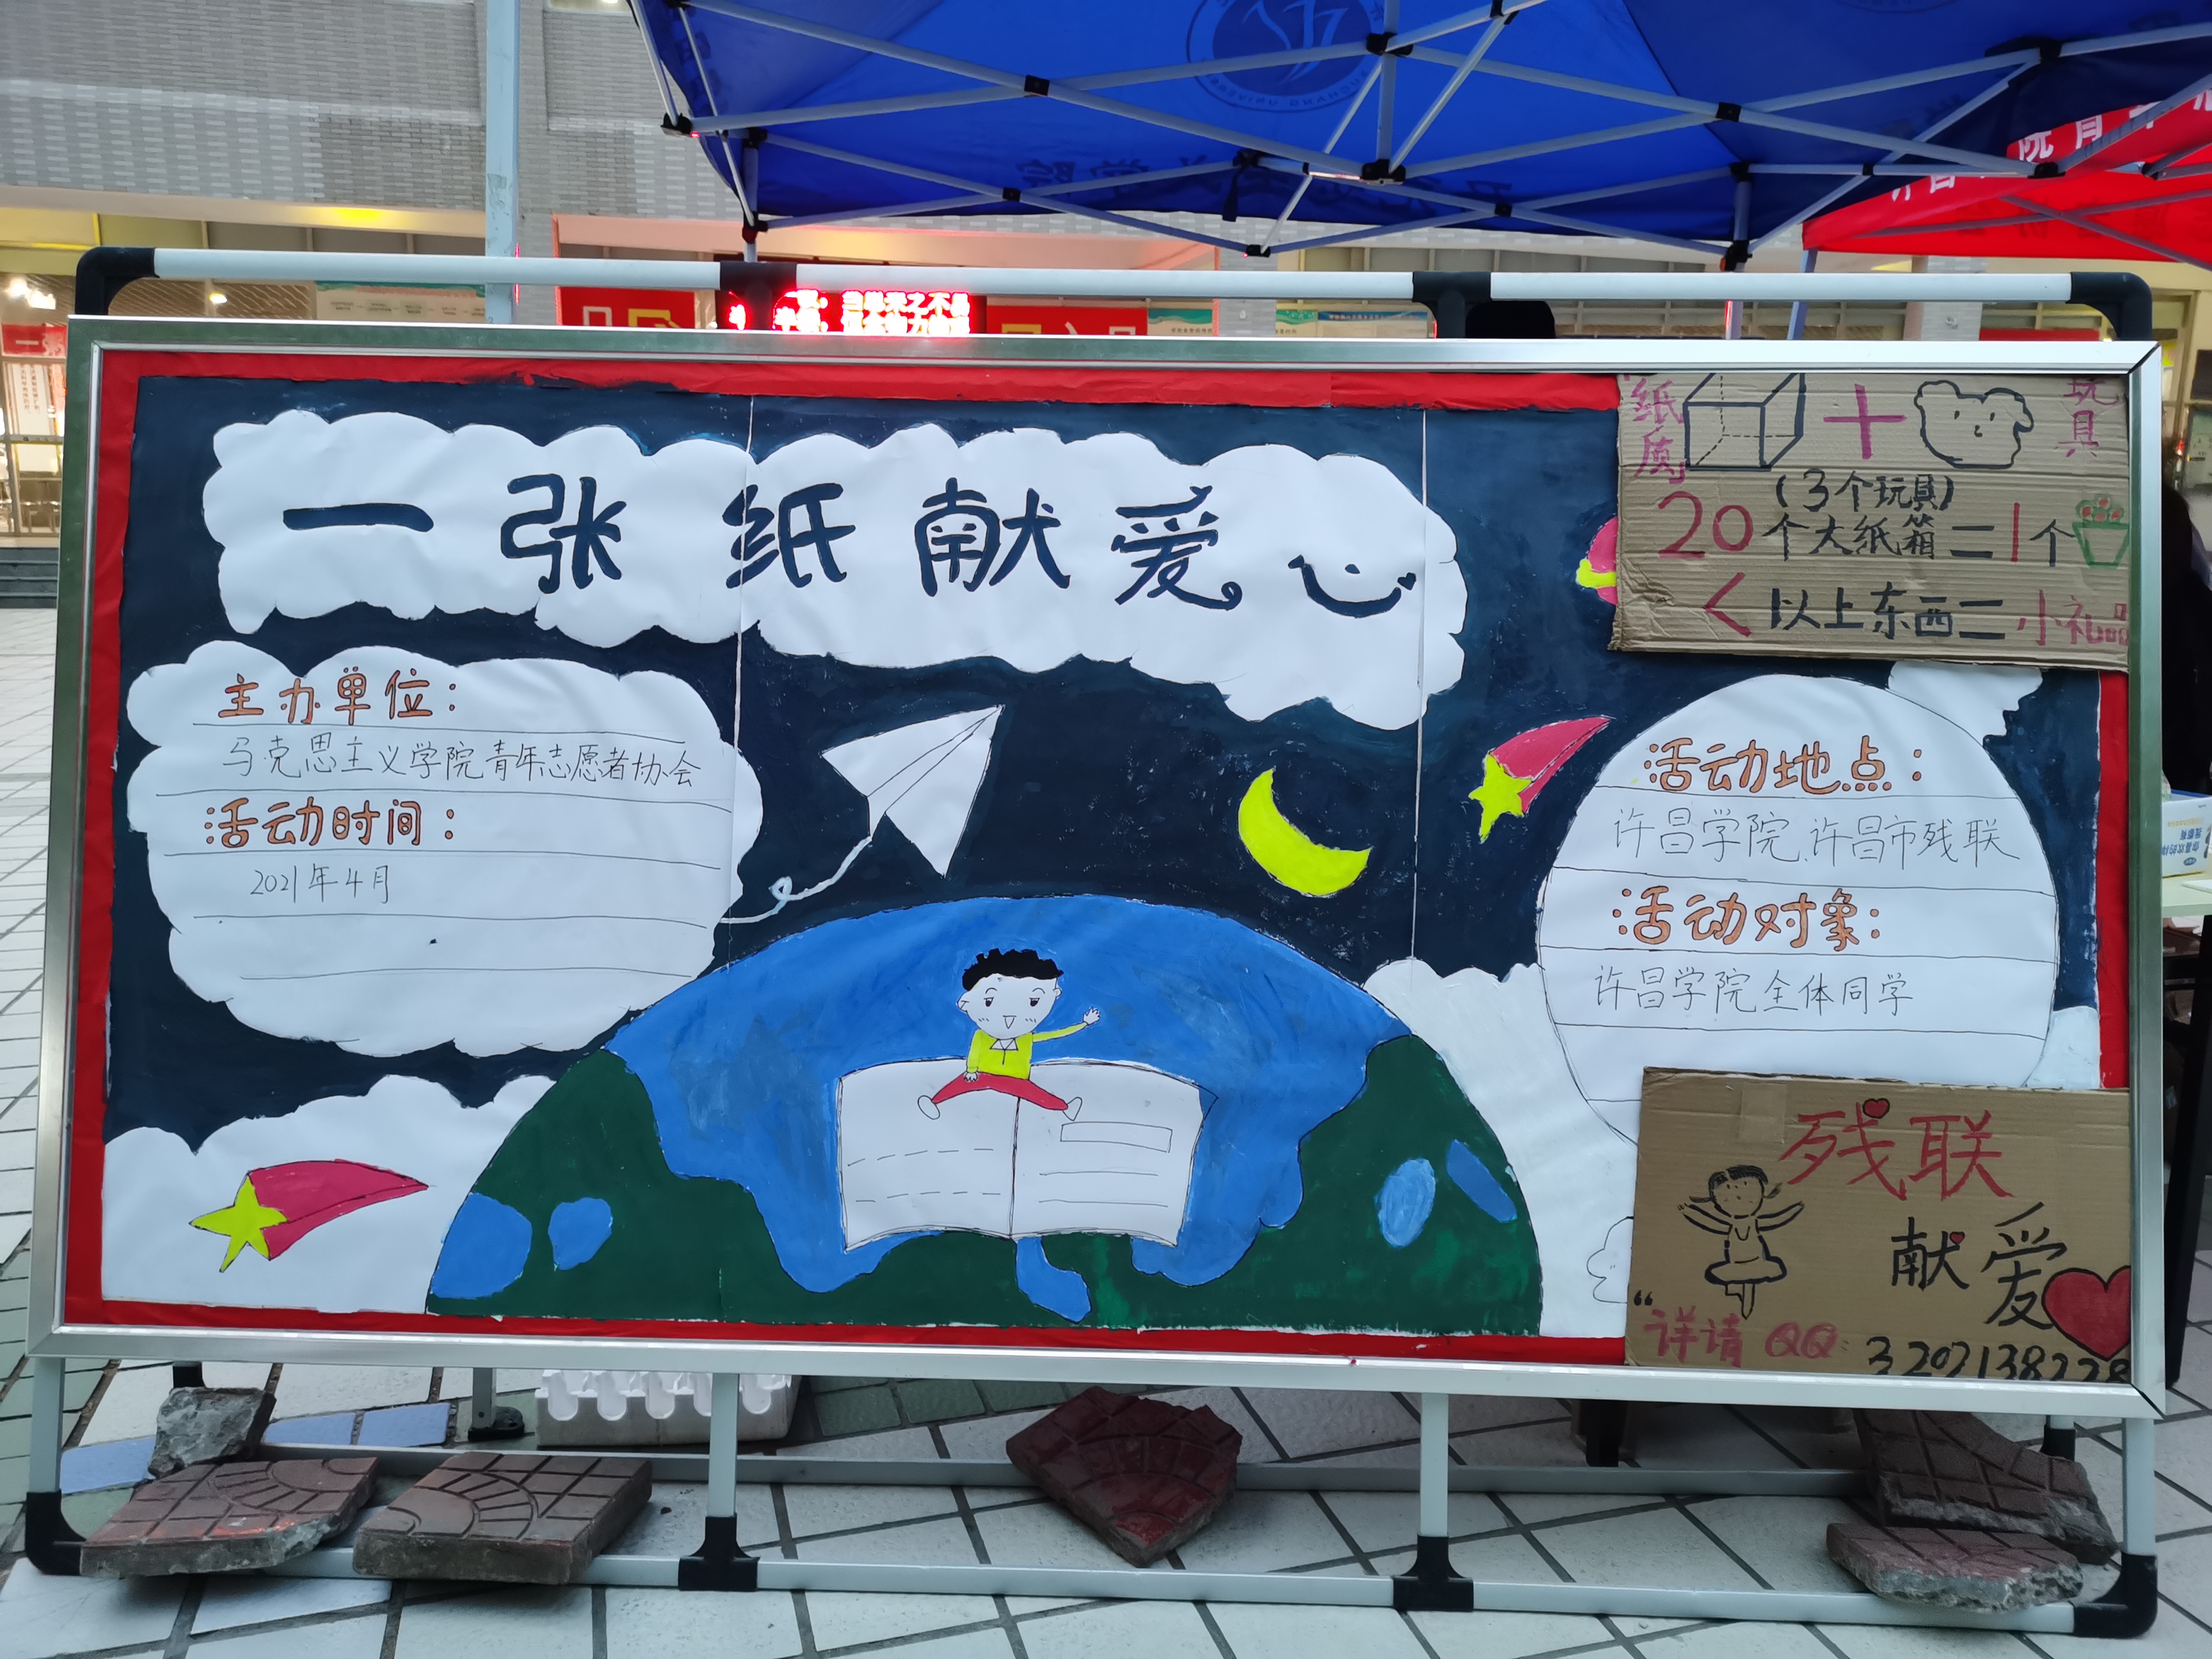 一张纸献爱心
主办单位：
马克思主义学院青年志愿者协会
活动时间：
2021年4月
"纸质"
+
玩具
（3个玩具）
20个大纸箱=1个
<以上东西=小礼品
活动地点：
许昌学院、许昌市残联
活动对象：
许昌学院全体同学
残联
献爱
"详请QQ：3202138228